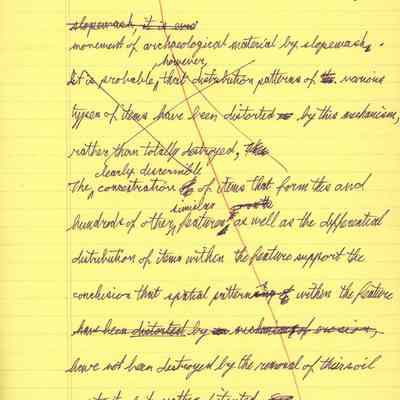 slopewash, it is evid
monement of archaeological material by slopewash.
however,
It is probable, that distribution patterns of the various
types of items have been distorted by this mechanism,
rather than totally destroyed,
clearly discernible
The concentration of items that form this and
similar
hundreds of other features as well as the differential
distribution of items within the feature support the
conclusion that spatial patterning within the feature
have been distorted by erosion,
have not been destroyed by the removal of this soil